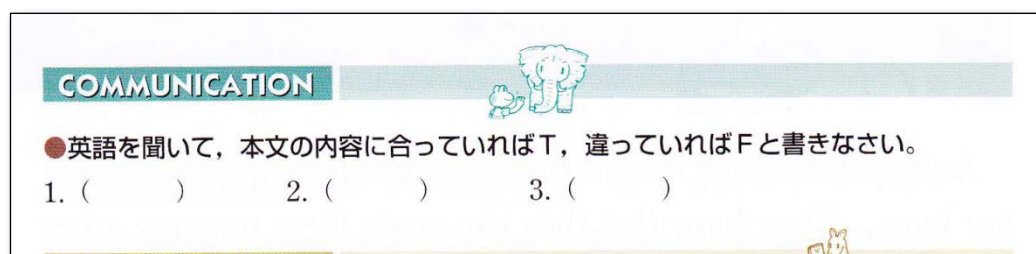 COMMUNICATION
●英語を聞いて，本文の内容に合っていればT，違っていればFと書きなさい。
1. (　　　) 2. (　　　) 3. (　　　)